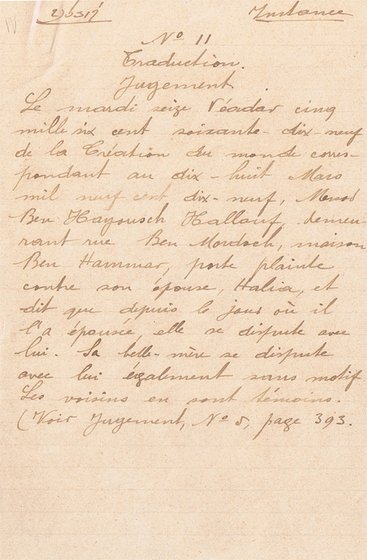 Instance
No 11
Traduction.
Jugement.
Le mardi seize Véadar cinq
mille six cent soixante-dix-neuf
de la Création du monde corres-
pondant au dix-huit Mars
mil neuf cent dix-neuf, Messod
Ben Hayousch Hallauf, demeu-
rant rue Ben Mordoch, maison
Ben Hammar, porte plainte
contre son épouse, Halia, et
dit que depuis le jour où il
l'a épousée, elle se dispute avec
lui. Sa belle-mère se dispute
avec lui également sans motif
Les voisins en sont témoins.
(Voir Jugement, No 5, page 393.